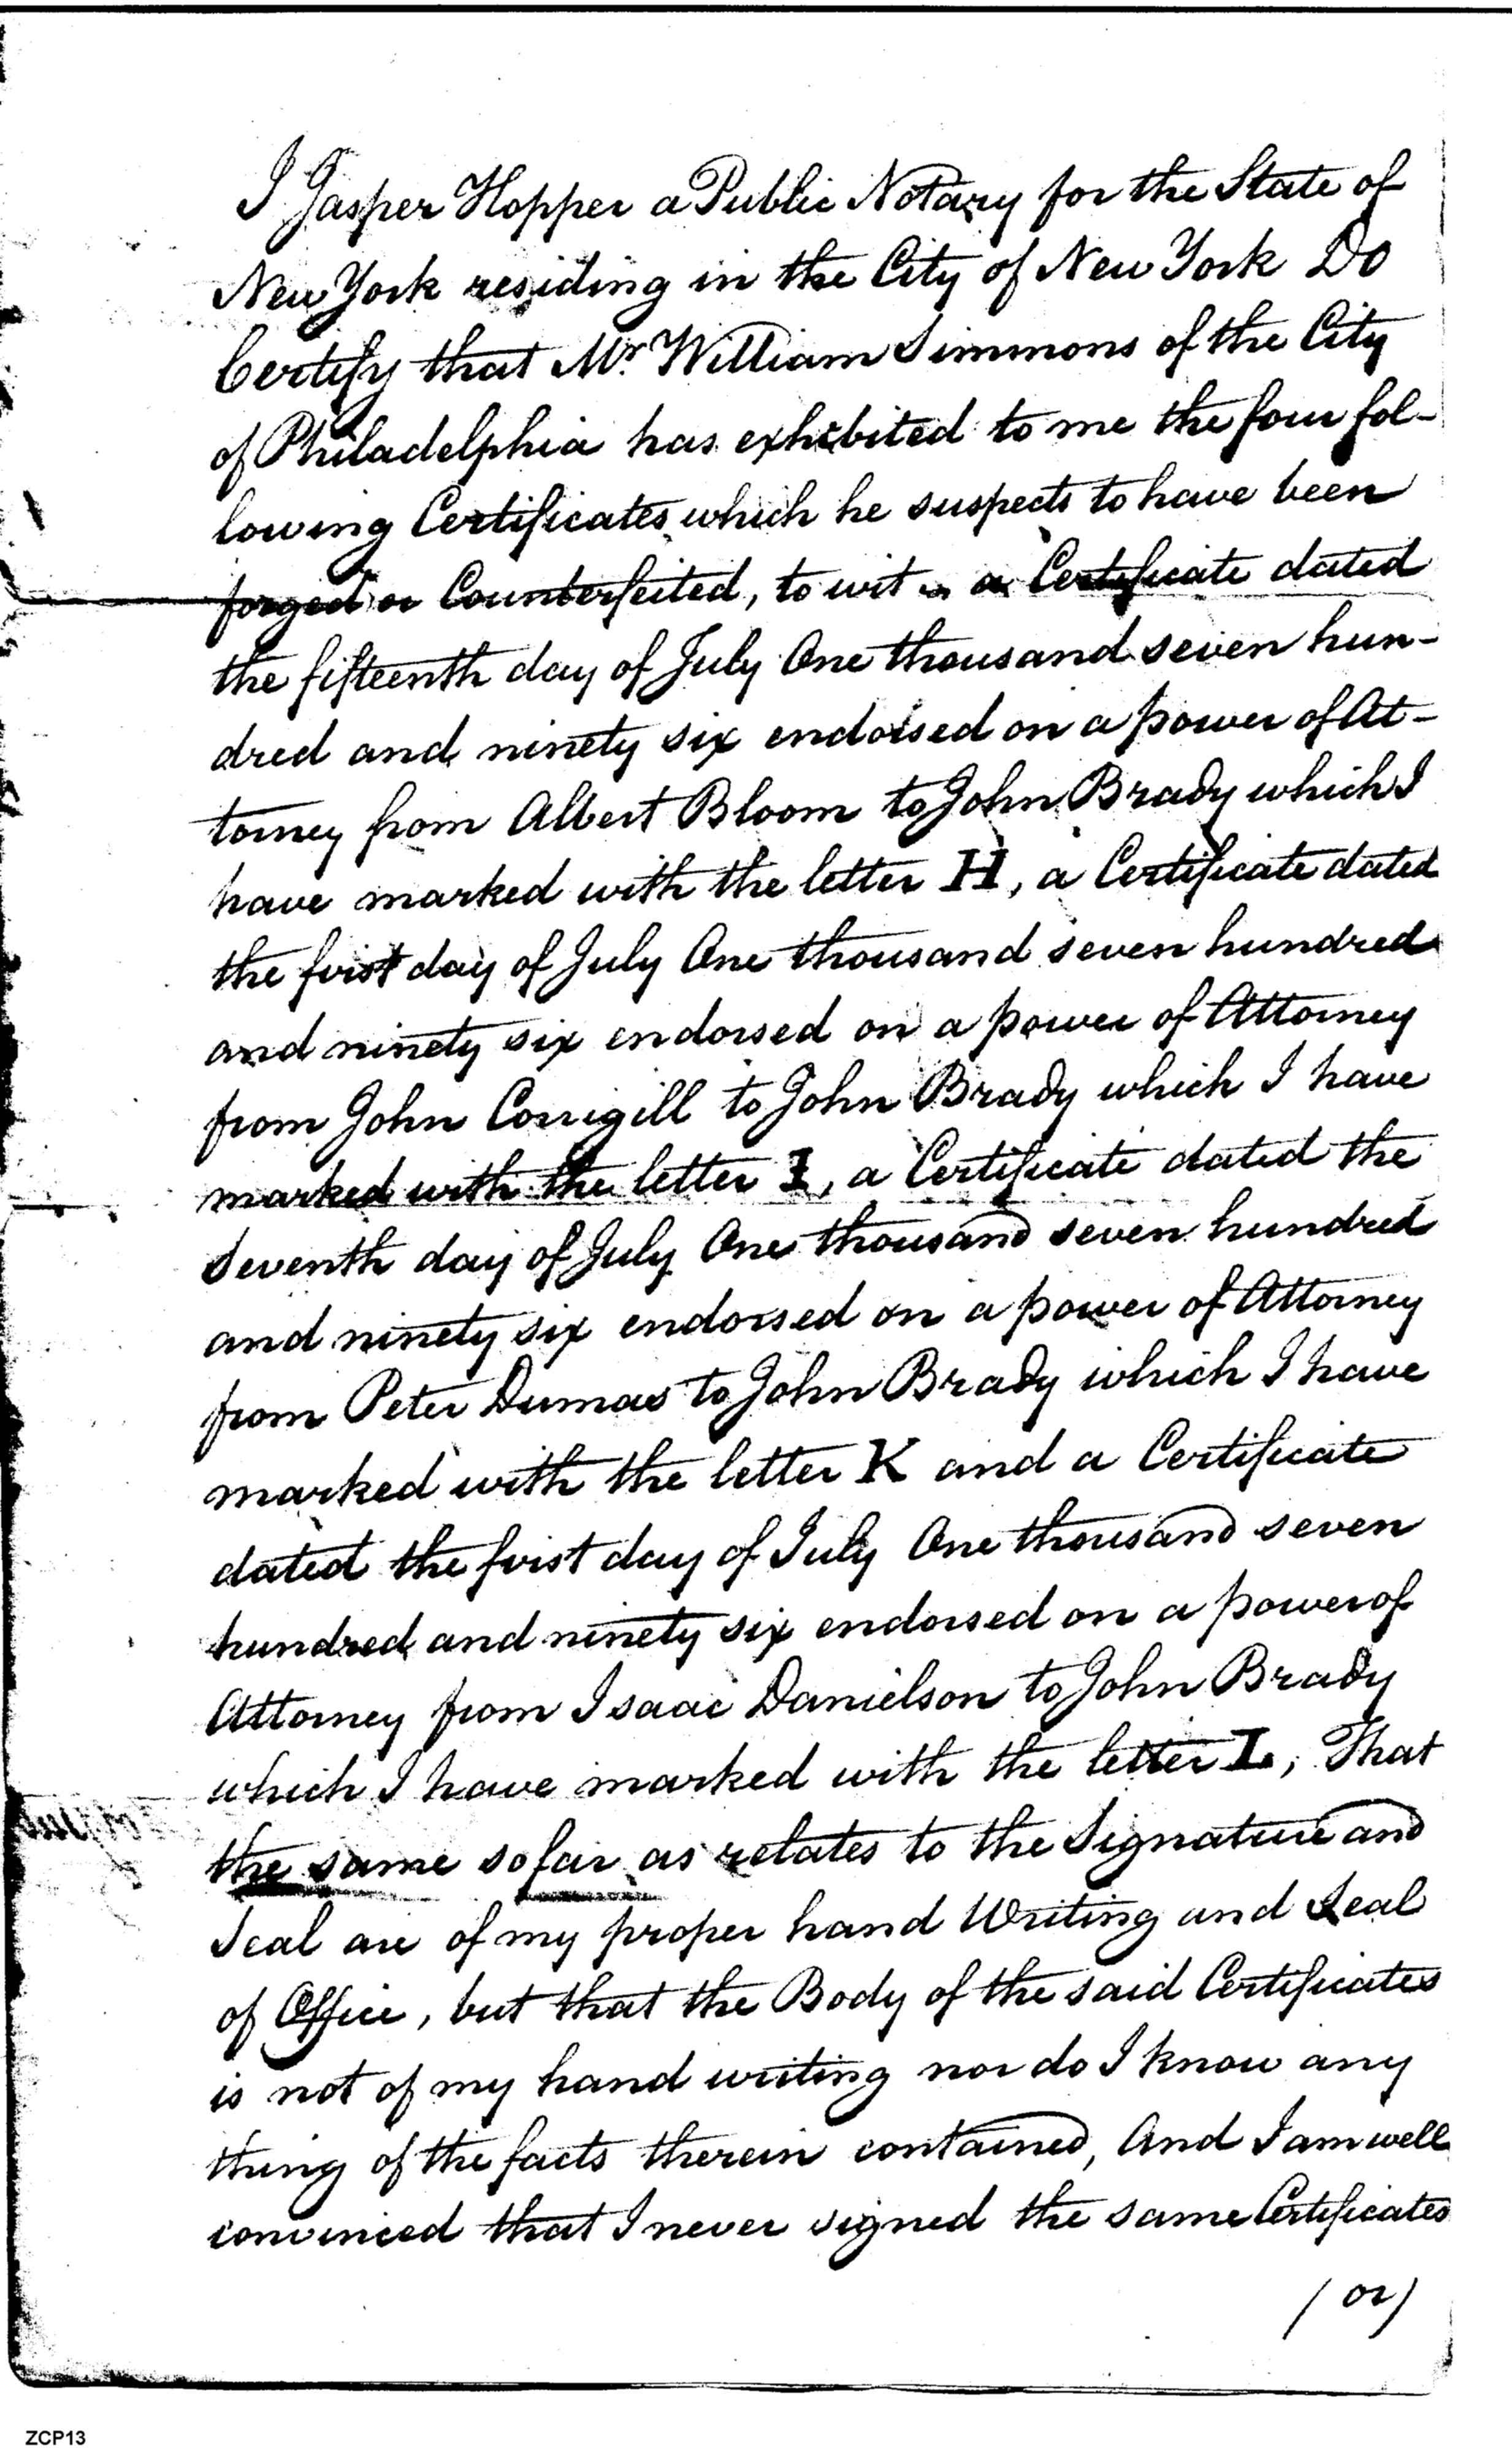 I Jasper Hopper a Public Notary for the State of
New York residing in the City of New York Do
Certify that Mr. William Simmons of the City
of Philadelphia has exhibited to me the four fol-
lowing Certificates which he suspects to have been
forged or Counterfeited, to wit a Certificate dated
the fifteenth day of July One thousand seven hun-
dred and ninety six endorsed on a power of At-
torney from Albert Bloom to John Brady which I
have marked with the letter H, a Certificate dated
the first day of July One thousand seven hundred
and ninety six endorsed on a power of Attorney
from John Corrigill to John Brady which I have
marked with the letter I, a Certificate dated the
Seventh day of July One thousand seven hundred
and ninety six endorsed on a power of Attorney
from Peter Dumas to John Brady which I have
marked with the letter K and a Certificate
dated the first day of July One thousand seven
hundred and ninety six endorsed on a power of
Attorney from Isaac Danielson to John Brady
which I have marked with the letter L, That
the same so far as relates to the Signature and
Seal are of my proper hand Writing and Seal
of Office, but that the Body of the said Certificates
is not of my hand writing nor do I know any
thing of the facts therein contained, And I am well
convinced that I never signed the same Certificates
/ or /
ZCP13